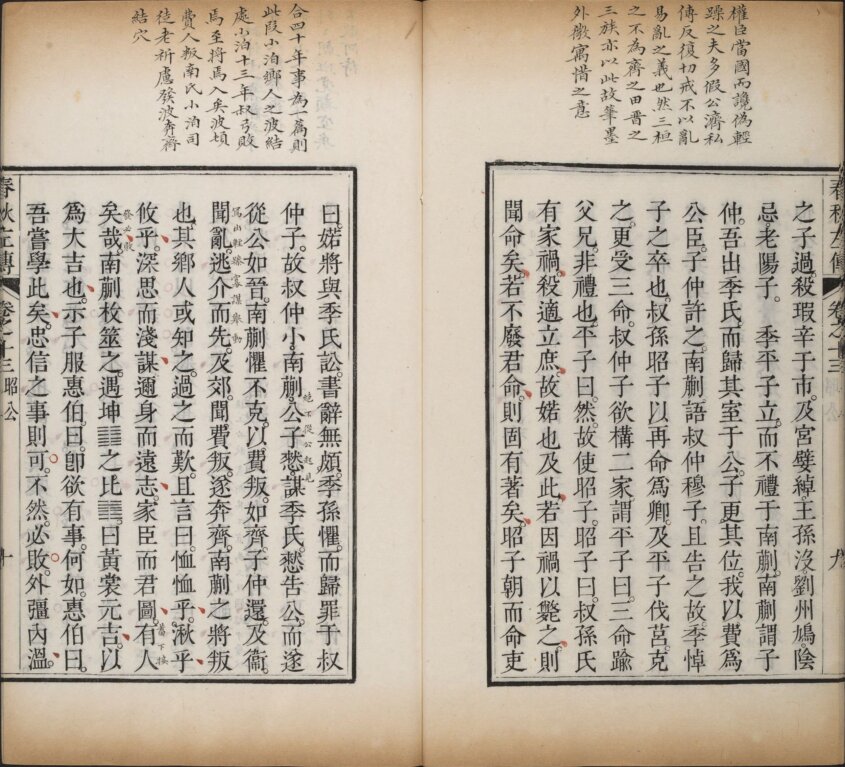 權臣當國而讒偽輕
躁之夫多假公濟私
傳反復切戒不以亂
易亂之義也然三桓
之不為齊之田晋之
三族亦以此故筆墨
外微寓惜之意
春秋左傳
卷之十三
昭公
九
之子過殺瑕辛于市及宮嬖綽王孫沒劉州鳩陰
忌老陽子。季平子立而不禮于南蒯南蒯謂子
仲吾出季氏而歸其室于公子更其位我以費為
公臣子仲許之南蒯語叔仲穆子且告之故季悼
子之卒也叔孫昭子以再命爲卿及平子伐莒克
之更受三命叔仲子欲構二家謂平子曰三命踰
父兄非禮也平子曰然故使昭子昭子曰叔孫氏
有家禍殺適立庶故婼也及此若因禍以斃之則
聞命矣若不廢君命則固有著矣昭子朝而命吏
合四十年事為一篇則
此段小泊鄉人之波結
處小泊十三年叔弓敗
焉至將焉入矣波頓
費人叛南氏小泊司
徒老祈慮發波奔齊
結穴
曰婼將與季氏訟書辭無頗季孫懼而歸罪于叔
仲子故叔仲小南蒯公子憗謀季氏憗告公而遂
從公如晉南蒯懼不克以費叛如齊子仲還及衞
聞亂逃介而先及郊聞費叛遂奔齊南蒯之將叛
也其鄉人或知之過之而歎且言曰恤恤乎湫乎
攸乎深思而淺謀邇身而遠志家臣而君圖有人
矣哉南蒯枚筮之遇坤䷁之比䷇曰黃裳元吉以
爲大吉也示子服惠伯曰卽欲有事何如惠伯曰
吾嘗學此矣忠信之事則可不然必敗外彊內溫
春秋左傳
卷之十三
昭公
十